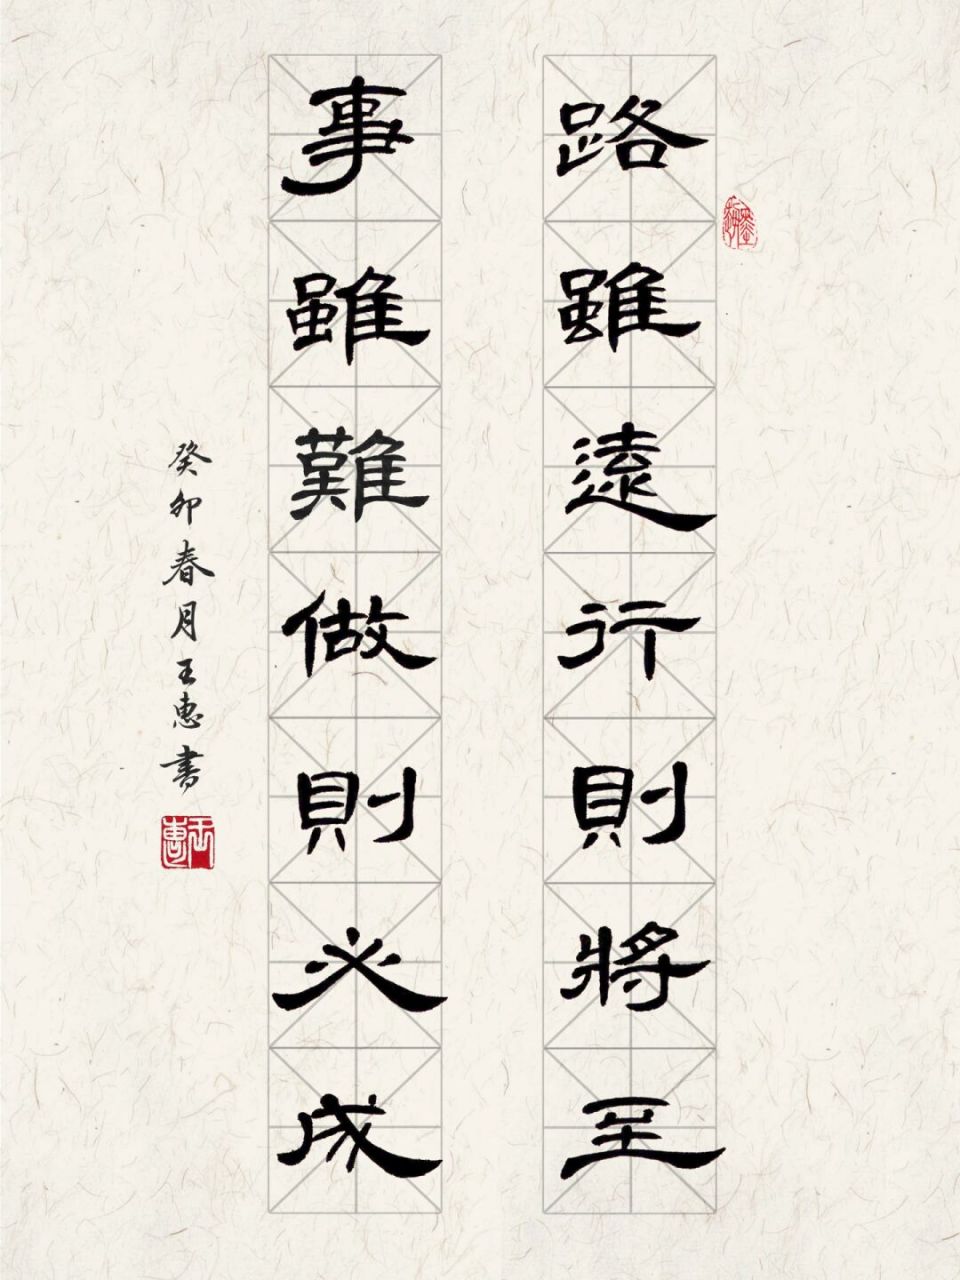 路雖遠行則將至
事雖難做則必成
癸卯春月王惠書
王惠